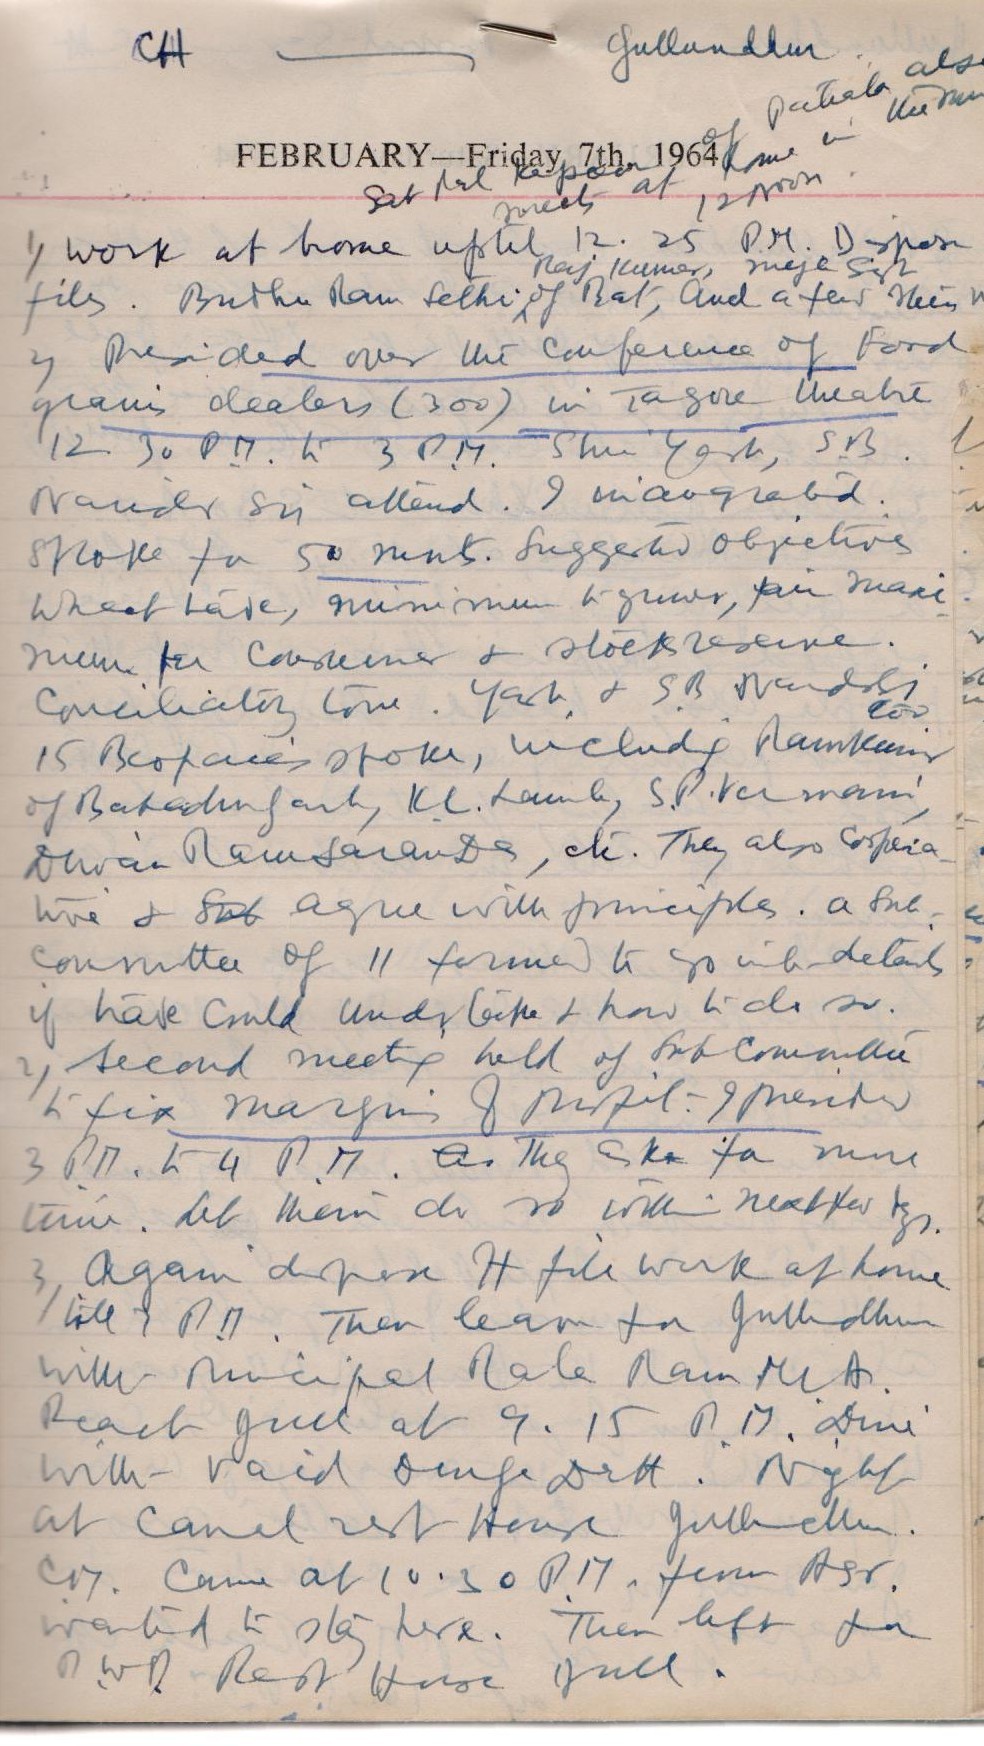 CH — Jullundhur.
of Patiala also
FEBRUARY—Friday, 7th, 1964
Sat Pal Kapoor
meets at home in the
12 Noon.
1) work at home uptil 12.25 P.M. Dispose
Raj Kumar,
files. Buthu Ram Sethi, of Bat, and a few
2) Presided over the Conference of Food
grains dealers (300) in Tagore Theatre
12.30 P.M. to 3 P.M. Shri Yash, S.B.
attend. I inaugrated.
Spoke for 50 mnts. Suggested objectives
wheat trade, minimum to grower, fair maxi-
mum for Consumer & stocks reserve.
Conciliatory tone. Yash, & S.B.
too
15 Beoparies spoke, including Ramkumar
of Bahadurgarh, K.L.
Dewan Ram Saran Das, etc. They also Coopera-
tive & agree with principles. a Sub-
committee of 11 formed to go into details
if trade Could undertake & how to do so.
2) Second meeting held of Sub Committee
to fix margins of profit. I presided
3 P.M. to 4 P.M. As They ask for more
time. Let them do so within next few dys.
3) Again dispose H file work at home
till 7 P.M. Then leave for Jullundhur
with Principal Rala Ram MLA.
Reach Jull at 9.15 P.M. Dine
with Vaid Durga Datt. Night
at Canal rest House Jullundhur.
CM. Came at 10.30 P.M. from Asr.
wanted to stay here. Then left for
P.W.D. Rest House Jull.